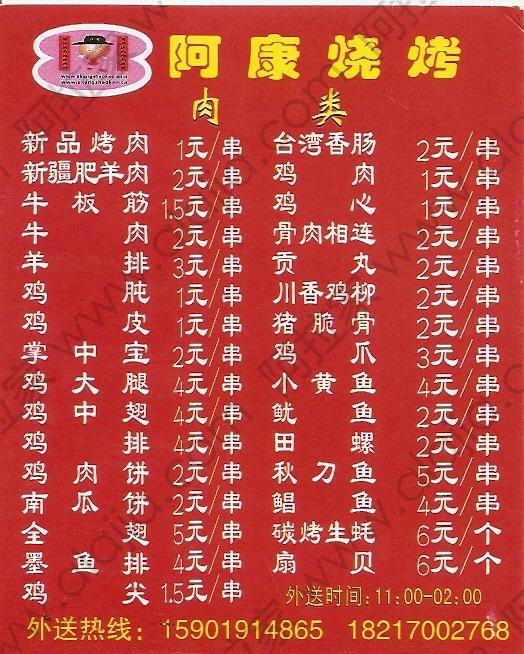 阿康烧烤
肉类
新品烤肉 1元/串
新疆肥羊肉 2元/串
牛板筋 1.5元/串
牛肉 2元/串
羊排 3元/串
鸡肫 1元/串
鸡皮 1元/串
掌中宝 2元/串
鸡大腿 4元/串
鸡中翅 4元/串
鸡排 4元/串
鸡肉饼 2元/串
南瓜饼 2元/串
全翅 5元/串
墨鱼排 4元/串
鸡尖 1.5元/串
台湾香肠 2元/串
鸡肉 1元/串
鸡心 1元/串
骨肉相连 2元/串
贡丸 2元/串
川香鸡柳 2元/串
猪脆骨 2元/串
鸡爪 3元/串
小黄鱼 4元/串
鱿鱼 2元/串
田螺 2元/串
秋刀鱼 5元/串
鲳鱼 4元/串
碳烤生蚝 6元/个
扇贝 6元/个
外送时间:11:00-02:00
外送热线: 15901914865 18217002768